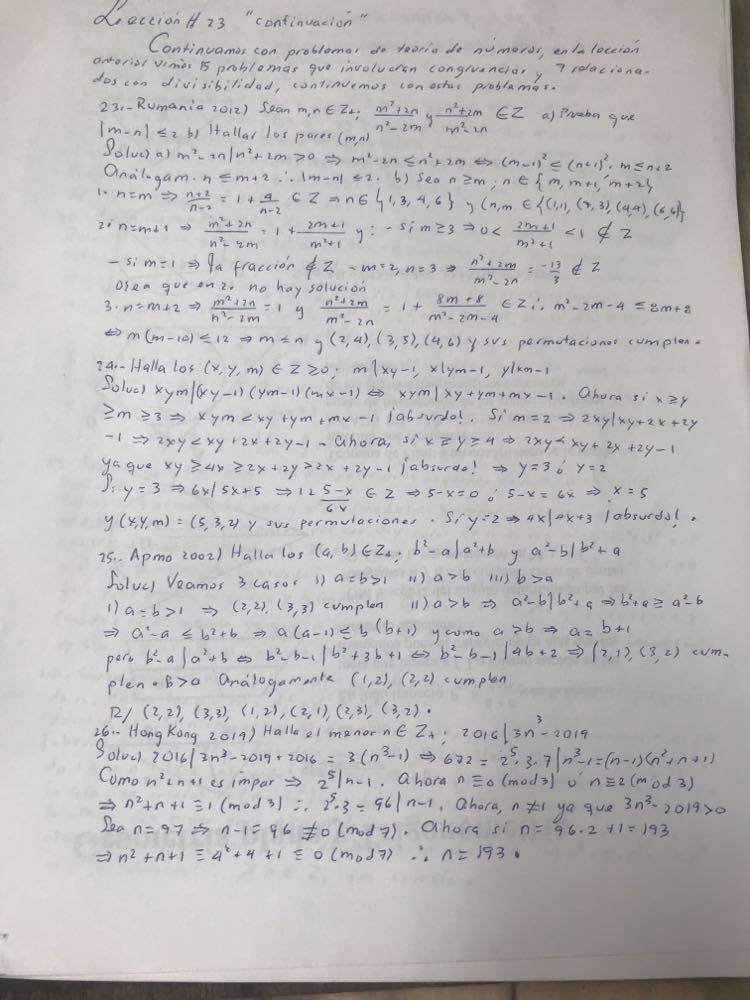 Lección # 23 "continuación"
Continuamos con problemas de teoría de números, en la lección
anterior vimos 15 problemas que involucran congruencias y 7 relaciona-
dos con divisibilidad, continuemos con estos problemas.
23.- Rumania 2012) Sean m,n ∈ Z+; (m²+2n)/(n²-2m) y (n²+2m)/(m²-2n) ∈ Z a) Prueba que
|m-n| ≤ 2 b) Hallar los pares (m,n)
Soluc) a) m²-2n | n²+2m > 0 ⇒ m²-2n ≤ n²+2m ⇔ (m-1)² ≤ (n+1)² ∴ m ≤ n+2
Análogam. n ≤ m+2 ∴ |m-n| ≤ 2. b) Sea n ≥ m; n ∈ {m, m+1, m+2}
1. n=m ⇒ (n+2)/(n-2) = 1 + 4/(n-2) ∈ Z ⇒ n ∈ {1,3,4,6} y (n,m ∈ {(1,1), (3,3), (4,4), (6,6)}
2. n=m+1 ⇒ (m²+2n)/(n²-2m) = 1 + (2m+1)/(m²+1) y: - si m ≥ 3 ⇒ 0 < (2m+1)/(m²+1) < 1 ∉ Z
- si m=1 ⇒ la fracción ∉ Z - m=2, n=3 ⇒ (n²+2m)/(m²-2n) = -13/3 ∉ Z
osea que en 2. no hay solución
3. n=m+2 ⇒ (m²+2n)/(n²-2m) = 1 y (n²+2m)/(m²-2n) = 1 + (8m+8)/(m²-2m-4) ∈ Z ∴ m²-2m-4 ≤ 8m+8
⇔ m(m-10) ≤ 12 ⇒ m ≤ n y (2,4), (3,5), (4,6) y sus permutaciones cumplen.
24.- Halla los (x,y,m) ∈ Z ≥ 0; m | xy-1, x | ym-1, y | xm-1
Soluc) xym | (xy-1)(ym-1)(mx-1) ⇔ xym | xy+ym+mx-1. Ahora si x ≥ y
≥ m ≥ 3 ⇒ xym < xy+ym+mx-1 ¡absurdo!. Si m=2 ⇒ 2xy | xy+2x+2y
-1 ⇒ 2xy < xy+2x+2y-1 - ahora, si x ≥ y ≥ 4 ⇒ 2xy < xy+2x+2y-1
ya que xy ≥ 4x ≥ 2x+2y > 2x+2y-1 ¡absurdo! ⇒ y=3 ó y=2
Si y=3 ⇒ 6x | 5x+5 ⇒ 1+ (5-x)/6x ∈ Z ⇒ 5-x=0 ó 5-x=6x ⇒ x=5
y (x,y,m) = (5,3,2) y sus permutaciones. Si y=2 ⇒ 4x | 4x+3 ¡absurdo!.
25.- Apmo 2002) Halla los (a,b) ∈ Z+; b²-a | a²+b y a²-b | b²+a
Soluc) Veamos 3 casos i) a=b>1 ii) a>b iii) b>a
i) a=b>1 ⇒ (2,2), (3,3) cumplen ii) a>b ⇒ a²-b | b²+a ⇒ b²+a ≥ a²-b
⇒ a²-a ≤ b²+b ⇒ a(a-1) ≤ b(b+1) y como a>b ⇒ a=b+1
pero b²-a | a²+b ⇔ b²-b-1 | b²+3b+1 ⇔ b²-b-1 | 4b+2 ⇒ (2,1), (3,2) cum-
plen. B>a Análogamente (1,2), (2,2) cumplen
R/ (2,2), (3,3), (1,2), (2,1), (2,3), (3,2).
26.- Hong Kong 2019) Halla el menor n ∈ Z+; 2016 | 3n³-2019
Soluc) 2016 | 3n³-2019+2016 = 3(n³-1) ⇒ 672 = 2⁵·3·7 | n³-1=(n-1)(n²+n+1)
Como n²+n+1 es impar ⇒ 2⁵ | n-1. Ahora n≡0 (mod 3) ó n≡2 (mod 3)
⇒ n²+n+1 ≡ 1 (mod 3) ∴ 2⁵·3 = 96 | n-1. Ahora, n≠1 ya que 3n³-2019>0
Sea n=97 ⇒ n-1=96 ≢ 0 (mod 7). Ahora si n = 96·2+1=193
⇒ n²+n+1 ≡ 4²+4+1 ≡ 0 (mod 7) ∴ n=193.